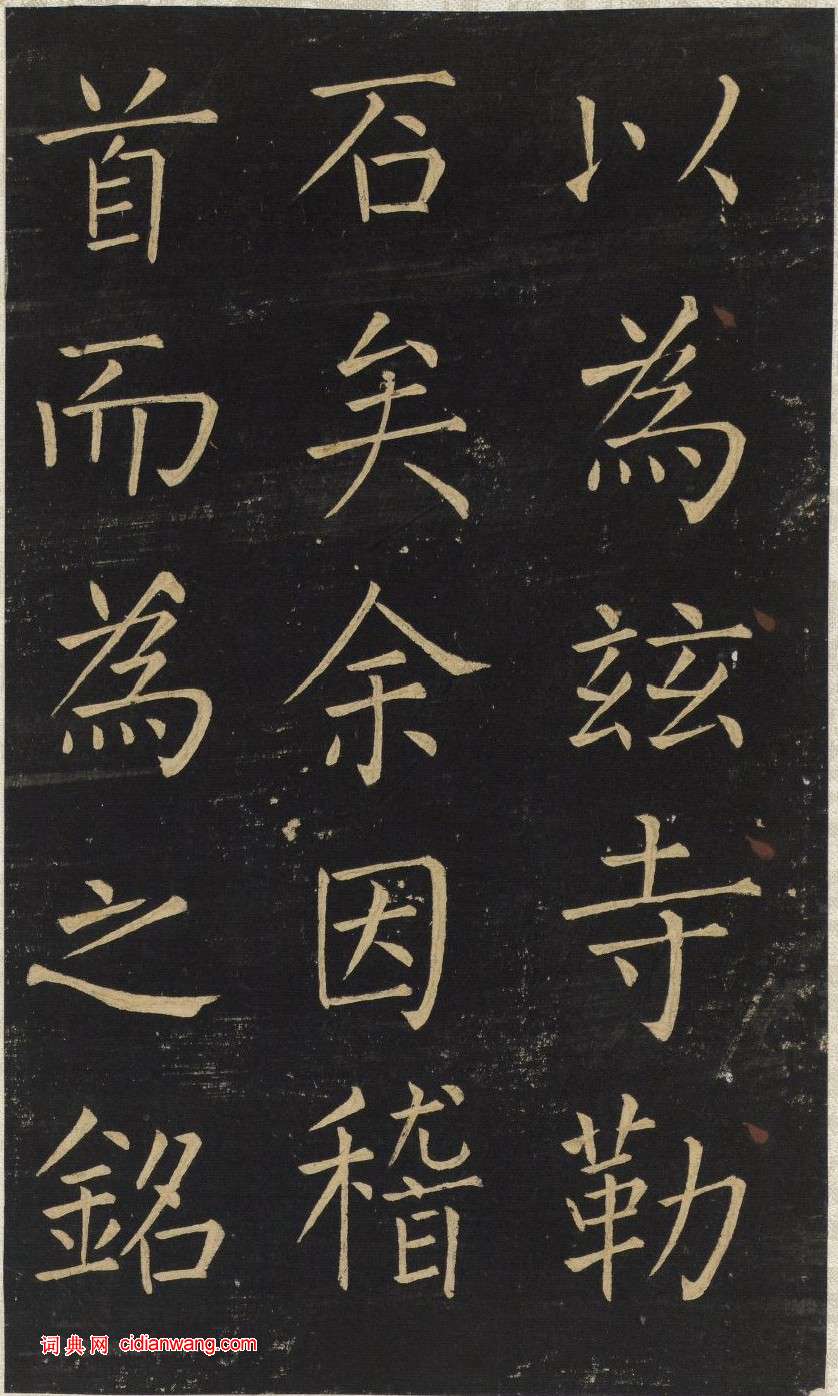 以為茲寺勒
石矣余因稽
首而為之銘
词典网 cidianwang.com